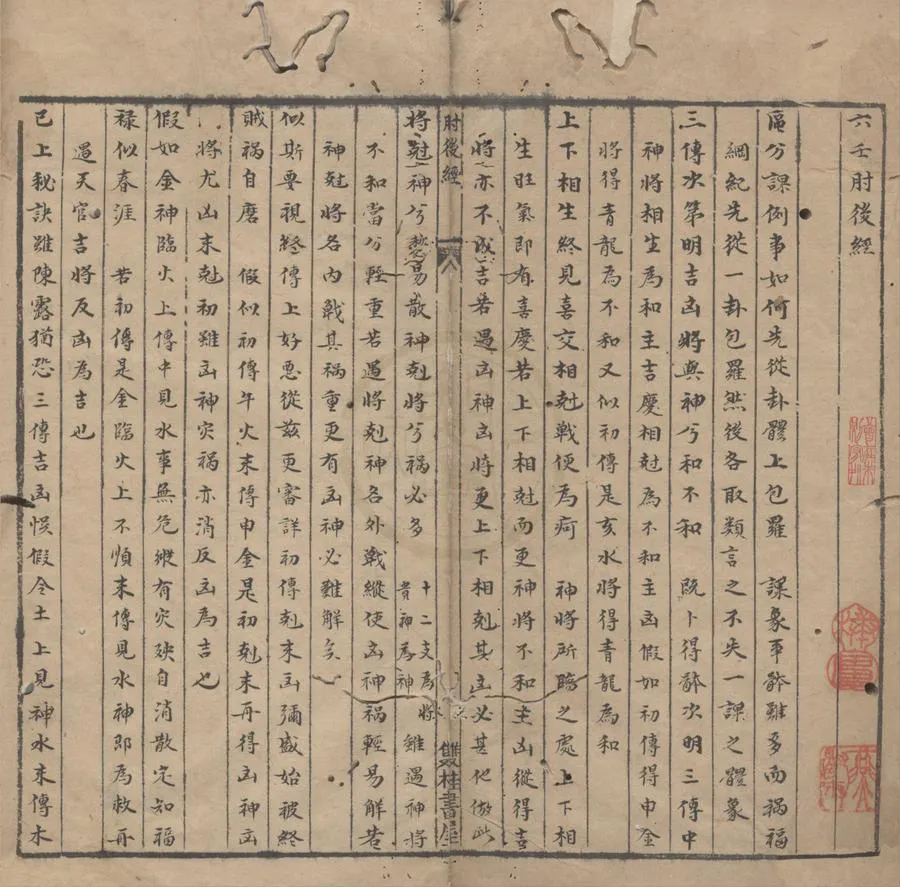 六壬肘後經
區分課例事如何先從卦體上包羅 課象事醉雖多而禍福
綱紀先從一卦包羅然後各取類言之不失一課之體象
三傳次第明吉凶將與神兮和不和 既卜得醉次明三傳中
神將相生為和主吉慶相尅為不和主凶假如初傳得申金
將得青龍為不和又似初傳是亥水將得青龍為和
上下相生終見喜交相尅戰便為疴 神將所臨之處上下相
生旺氣即有喜慶若上下相尅而更神將不和主凶從得吉
將之亦不成吉若遇凶神凶將更上下相剋其凶必甚他倣此
肘後經
雙桂書屋
將尅神兮愁易散神剋將兮禍必多 十二支為將貴神為神 雖遇神將
不和當分輕重若遇將剋神名外戰縱使凶神禍輕易解若
神尅將名內戰其禍重更有凶神必難解矣
似斯要視終傳上好惡從茲更審詳初傳剋末凶彌盛始被終
賊禍自磨 假似初傳午火末傳申金是初剋末再得凶神凶
將尤凶末尅初雖凶神灾禍亦消反凶為吉也
假如金神臨火上傳中見水事無危縱有灾殃自消散定知福
祿似春涯 若初傳是金臨火上不順末傳見水神即為救再
遇天官吉將反凶為吉也
已上秘訣雖陳露猶恐三傳吉凶悞假令土上見神水末傳木